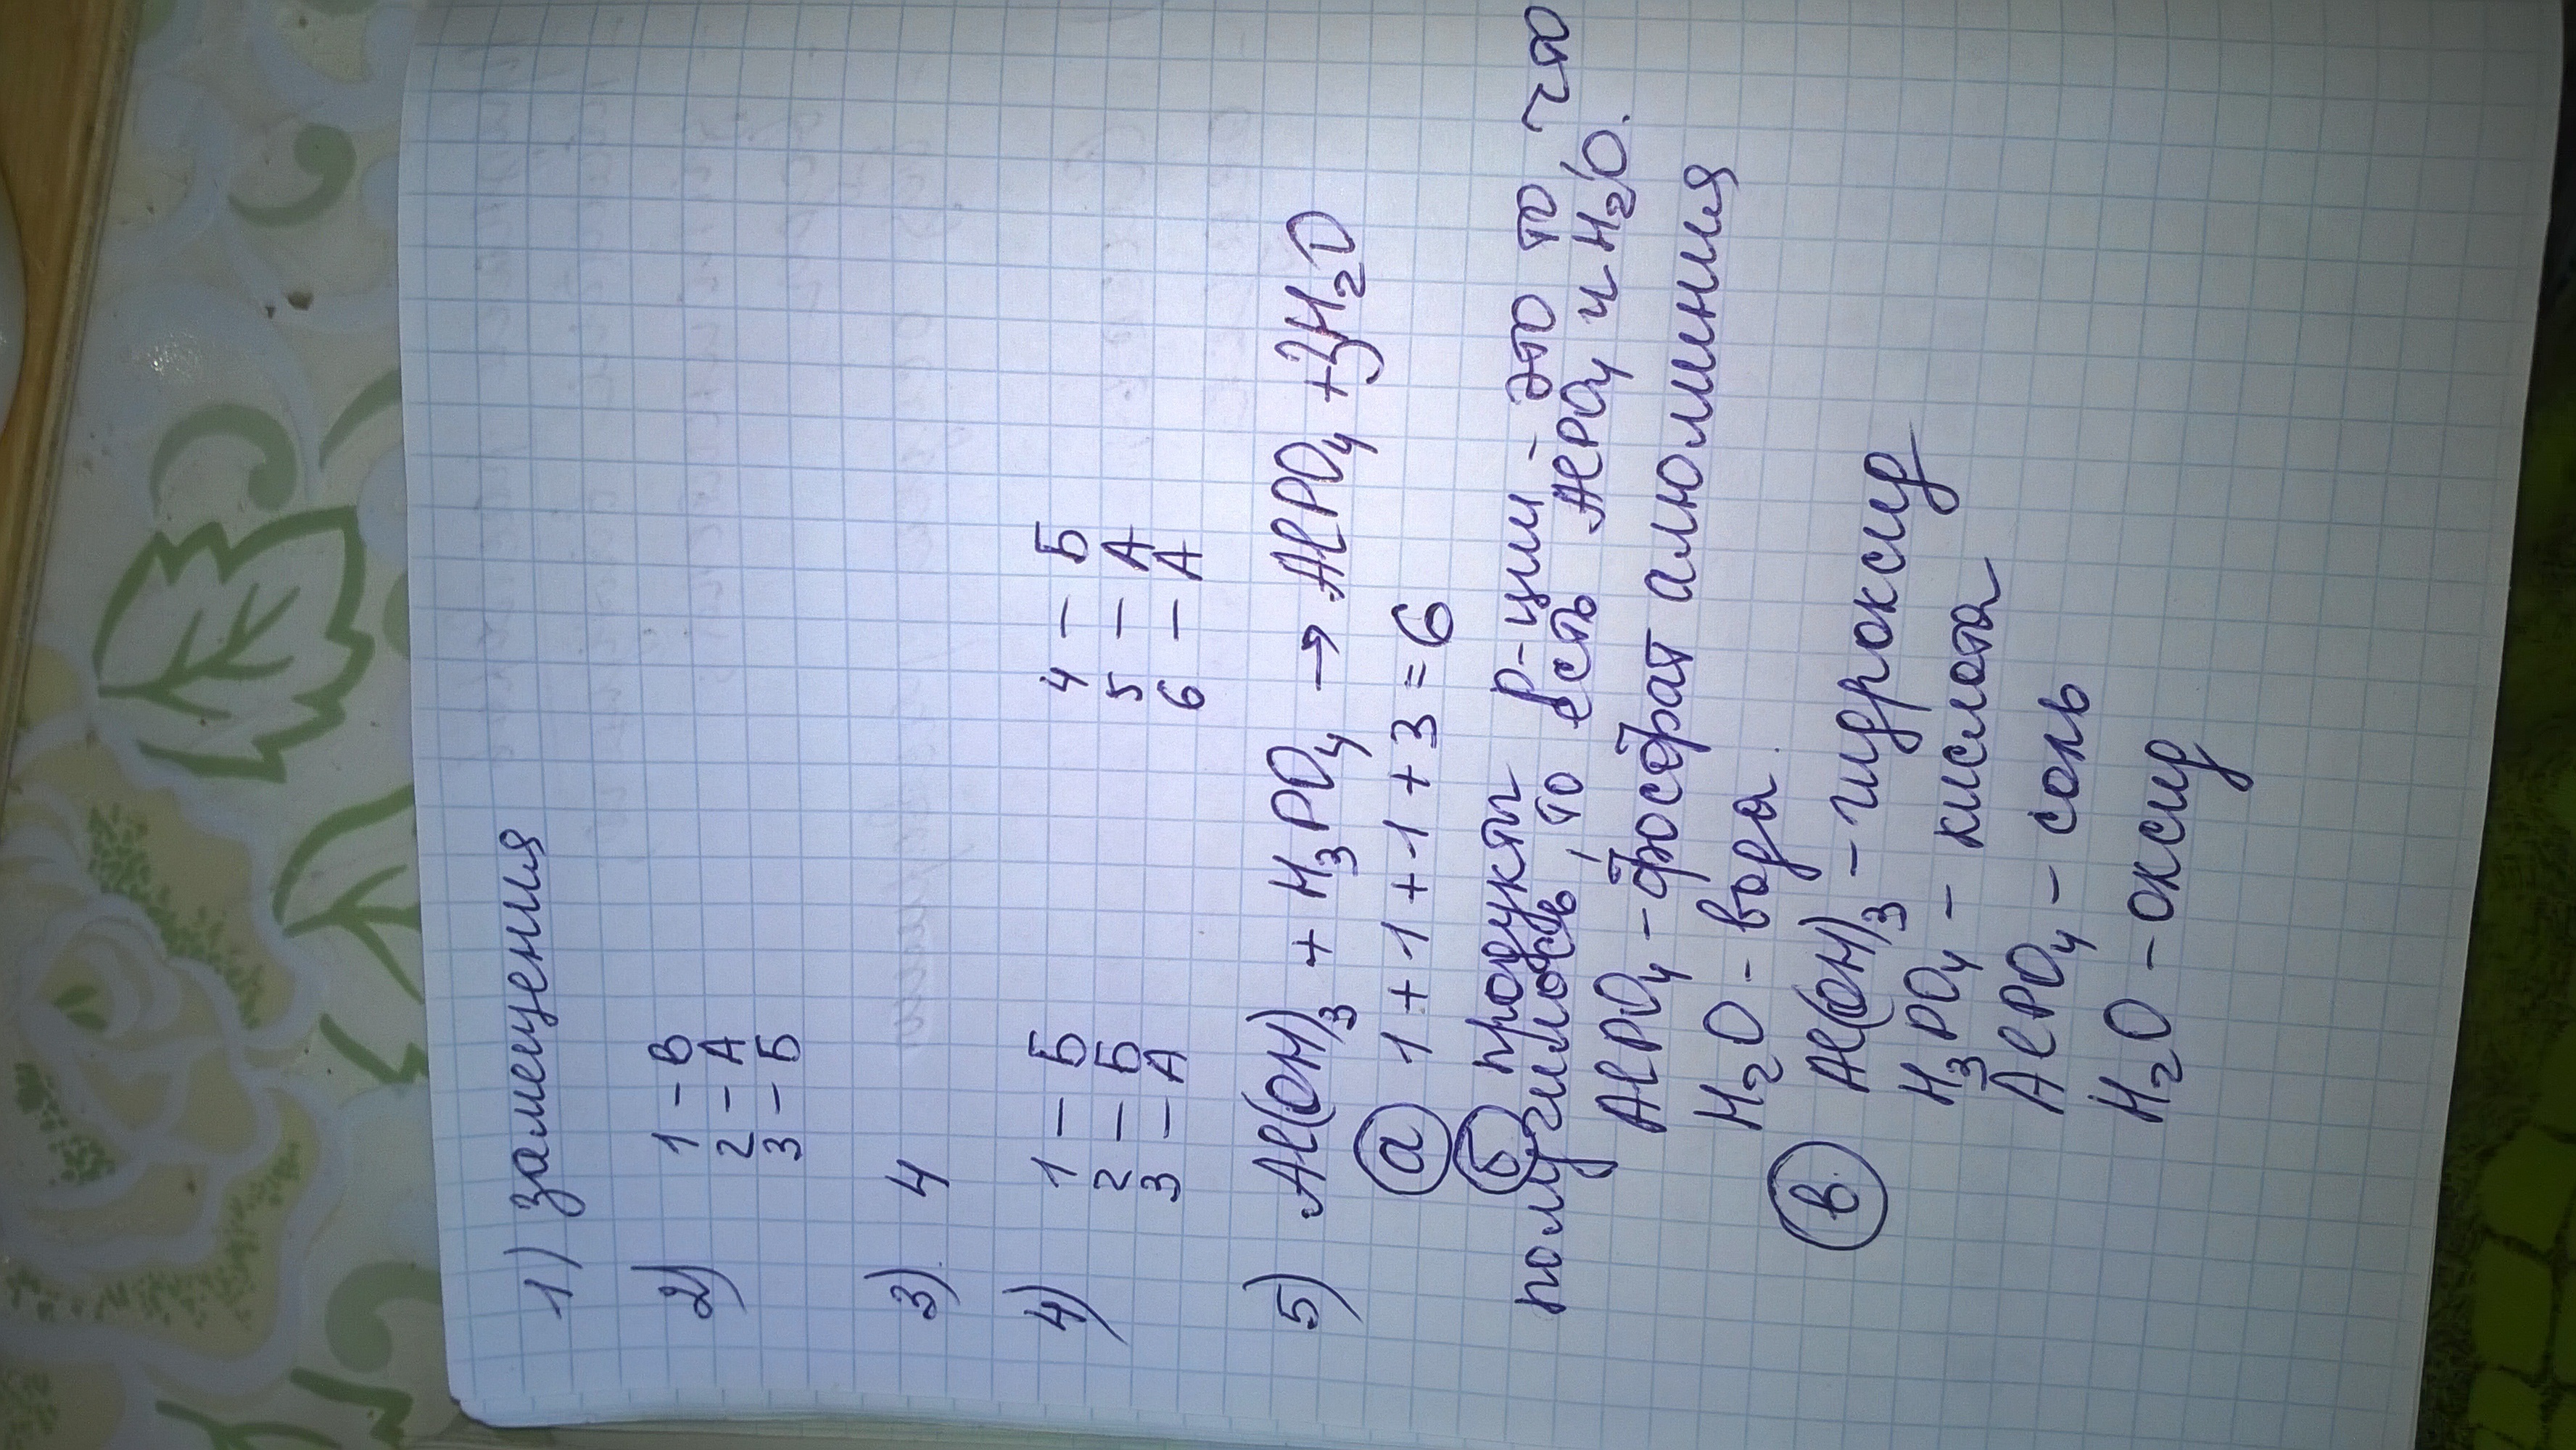 1) замещения
2) 1 – В
2 – А
3 – Б
3) 4
4) 1 – Б 4 – Б
2 – Б 5 – А
3 – А 6 – А
5) Al(OH)₃ + H₃PO₄ → AlPO₄ + 3H₂O
а 1 + 1 + 1 + 3 = 6
б продукты р-ции - это то что
получилось, то есть AlPO₄ и H₂O.
AlPO₄ - фосфат алюминия
H₂O - вода.
в. Al(OH)₃ - гидроксид
H₃PO₄ - кислота
AlPO₄ - соль
H₂O - оксид